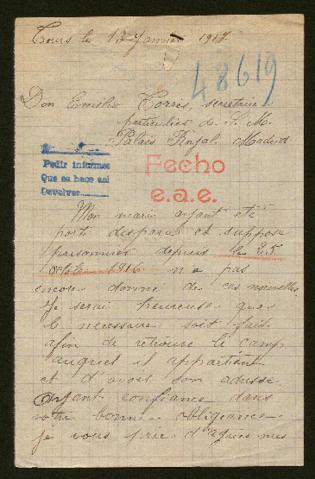 Tours le 13 Janvier 1917
48619
Don Emilio Torres, secrétaire
particulier de S. M.
Palais Royal. Madrid
Pedir informes
Que se hace asi
Devolver
Fecho
e.a.e.
Mon marie ayant été
porté disparus et supposé
prisonnier depuis le 25
Octobre 1916 n'a pas
encore donné de ces nouvelles.
Je serai heureuse que
le nécessaire soit fait
afin de retrouver le camp
auquel il appartient
et d'avoir son adresse.
Ayant confiance dans
votre bonne obligeance.
je vous prie d'agréer mes